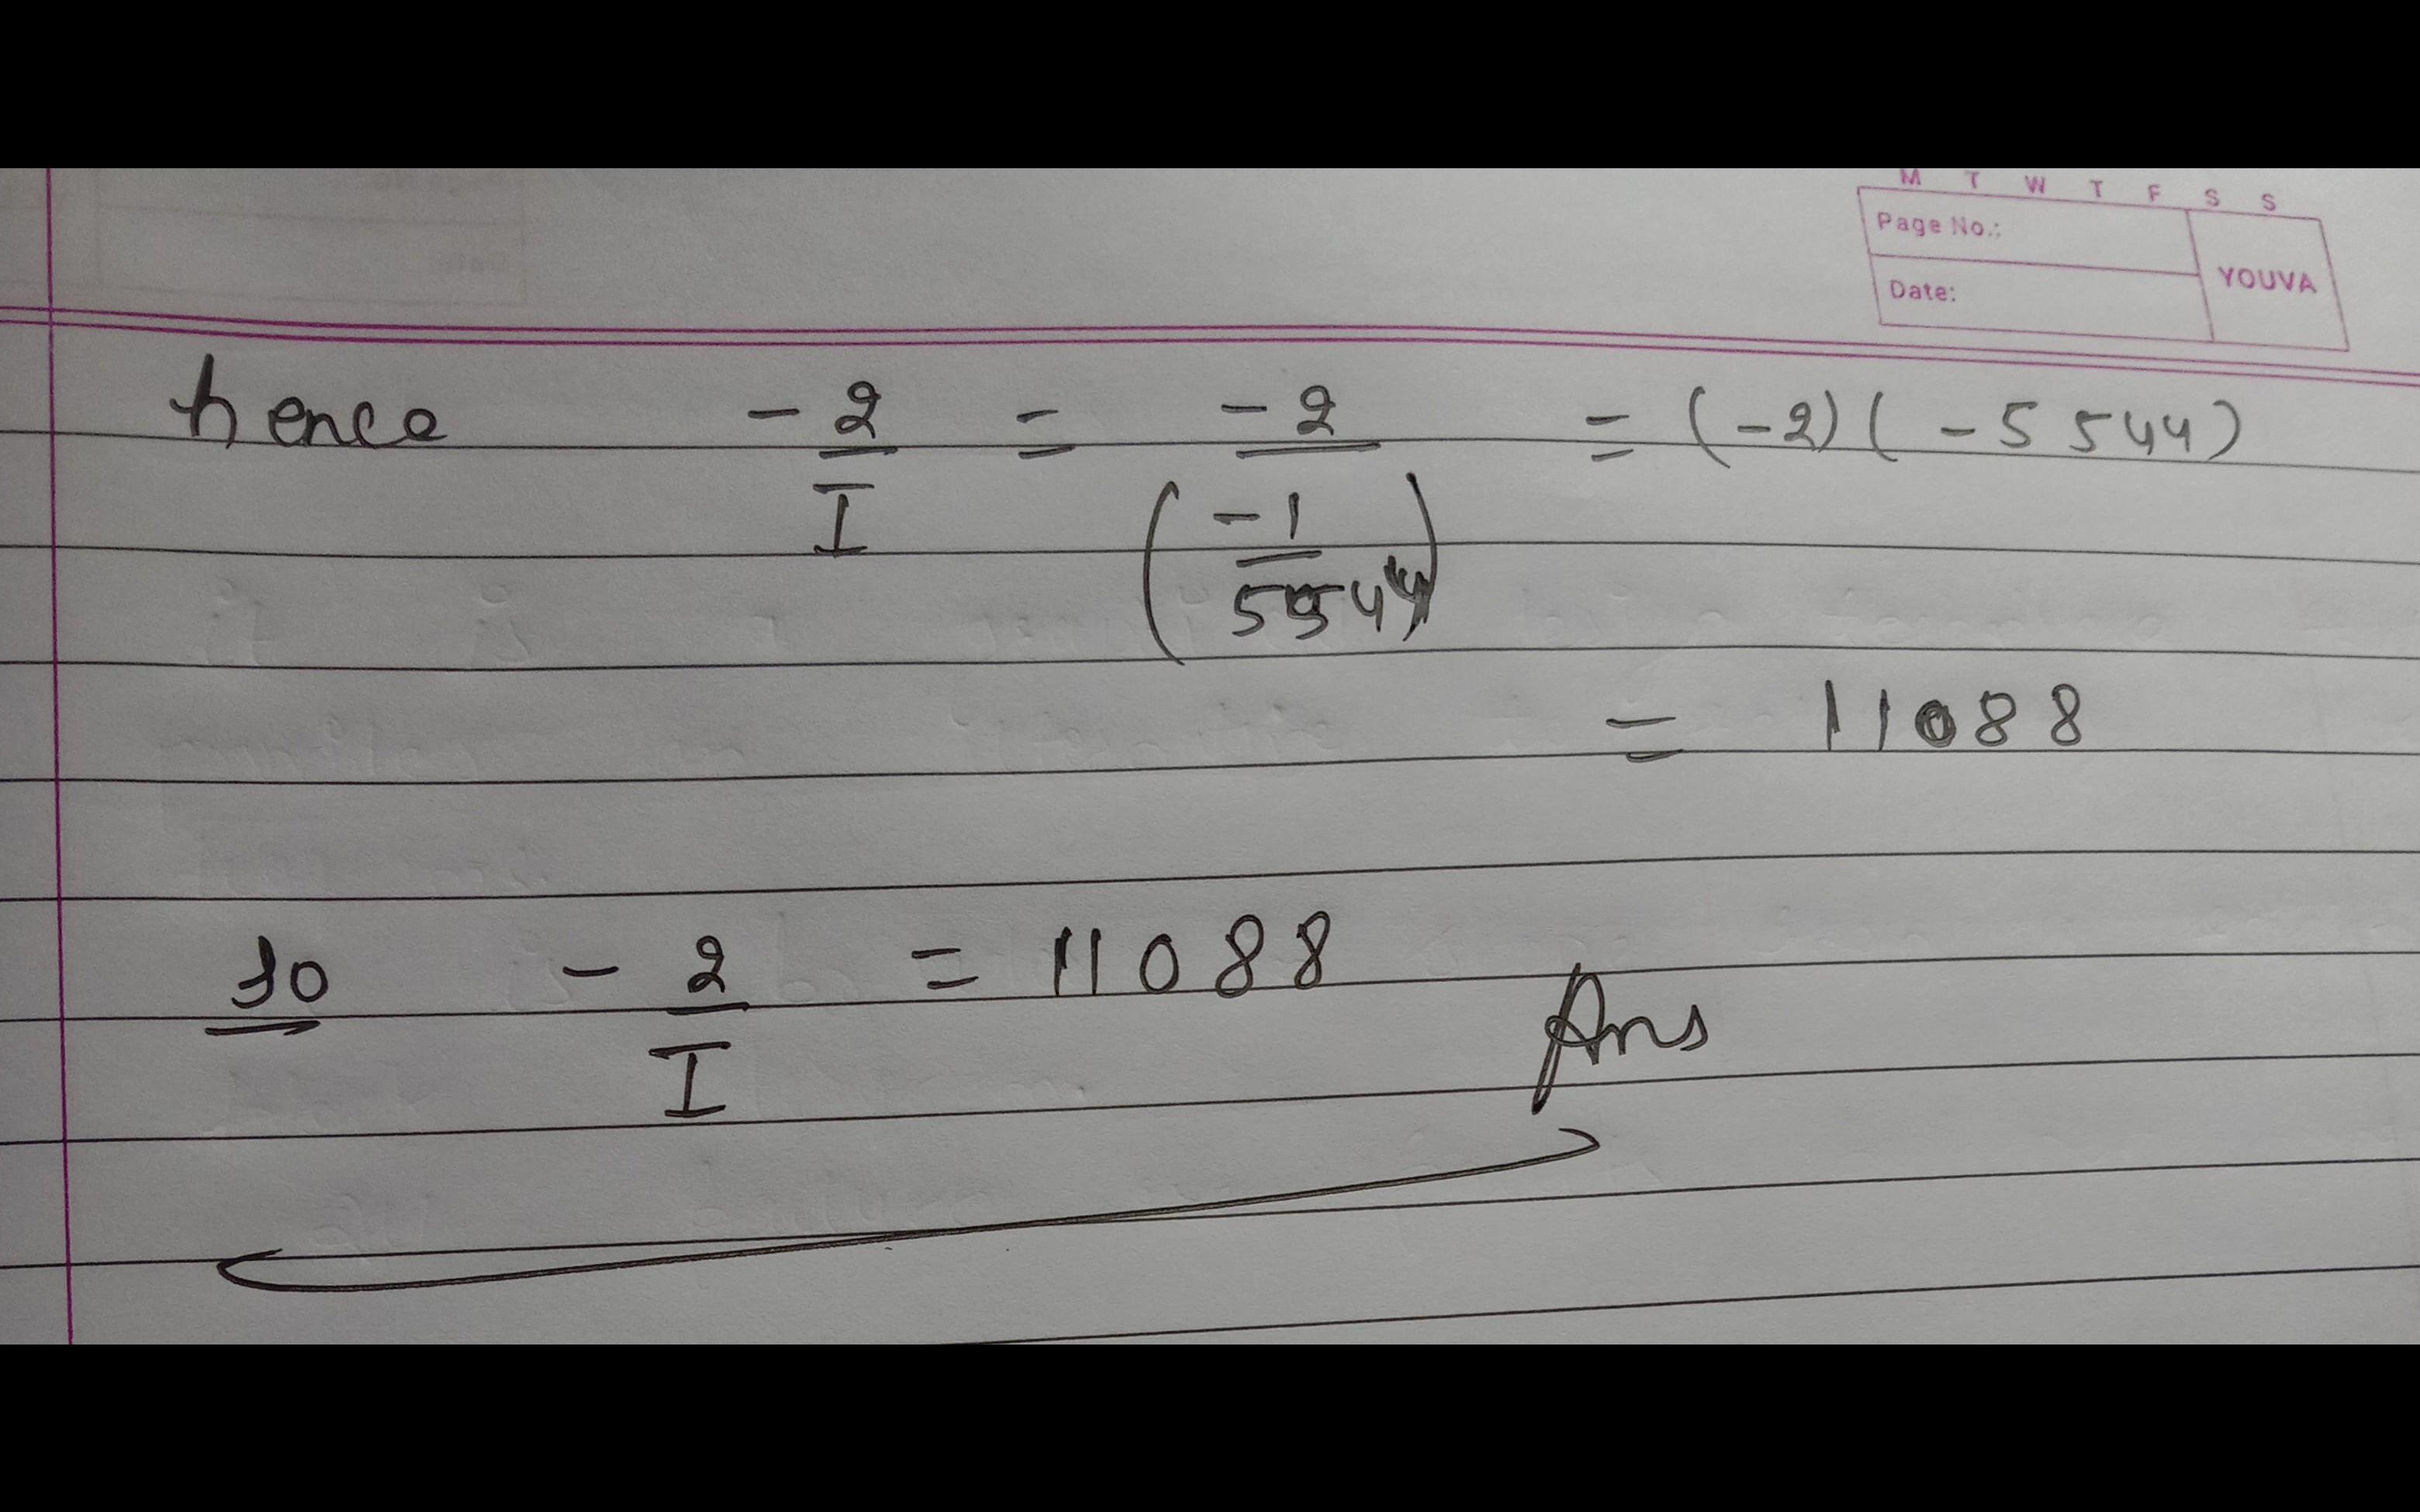 M T W T F S S
Page No.:
YOUVA
Date:
hence -2/I = -2/(-1/5544) = (-2)(-5544)
= 11088
so -2/I = 11088 Ans